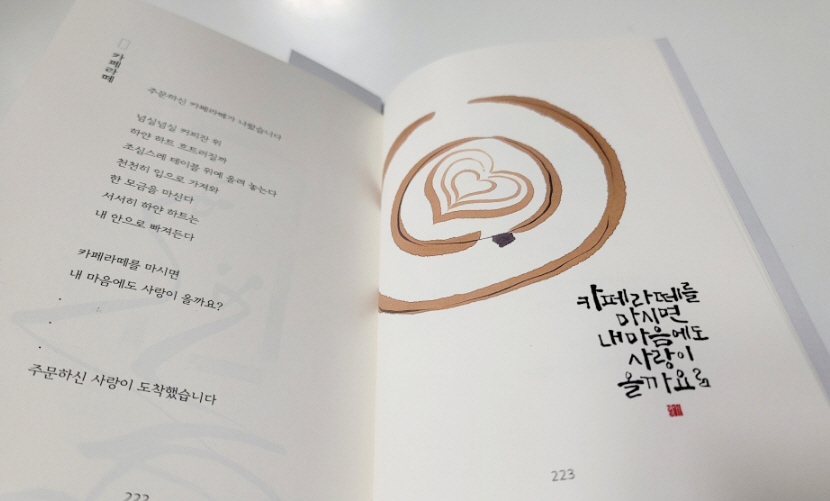 카페라떼
주문하신 카페라떼가 나왔습니다
넘실넘실 커피잔 위
하얀 하트 흐트러질까
조심스레 테이블 위에 올려 놓는다
천천히 입으로 가져와
한 모금을 마신다
서서히 하얀 하트는
내 안으로 빠져든다
카페라떼를 마시면
내 마음에도 사랑이 올까요?
주문하신 사랑이 도착했습니다
222
카페라떼를
마시면
내 마음에도
사랑이
올까요?
223